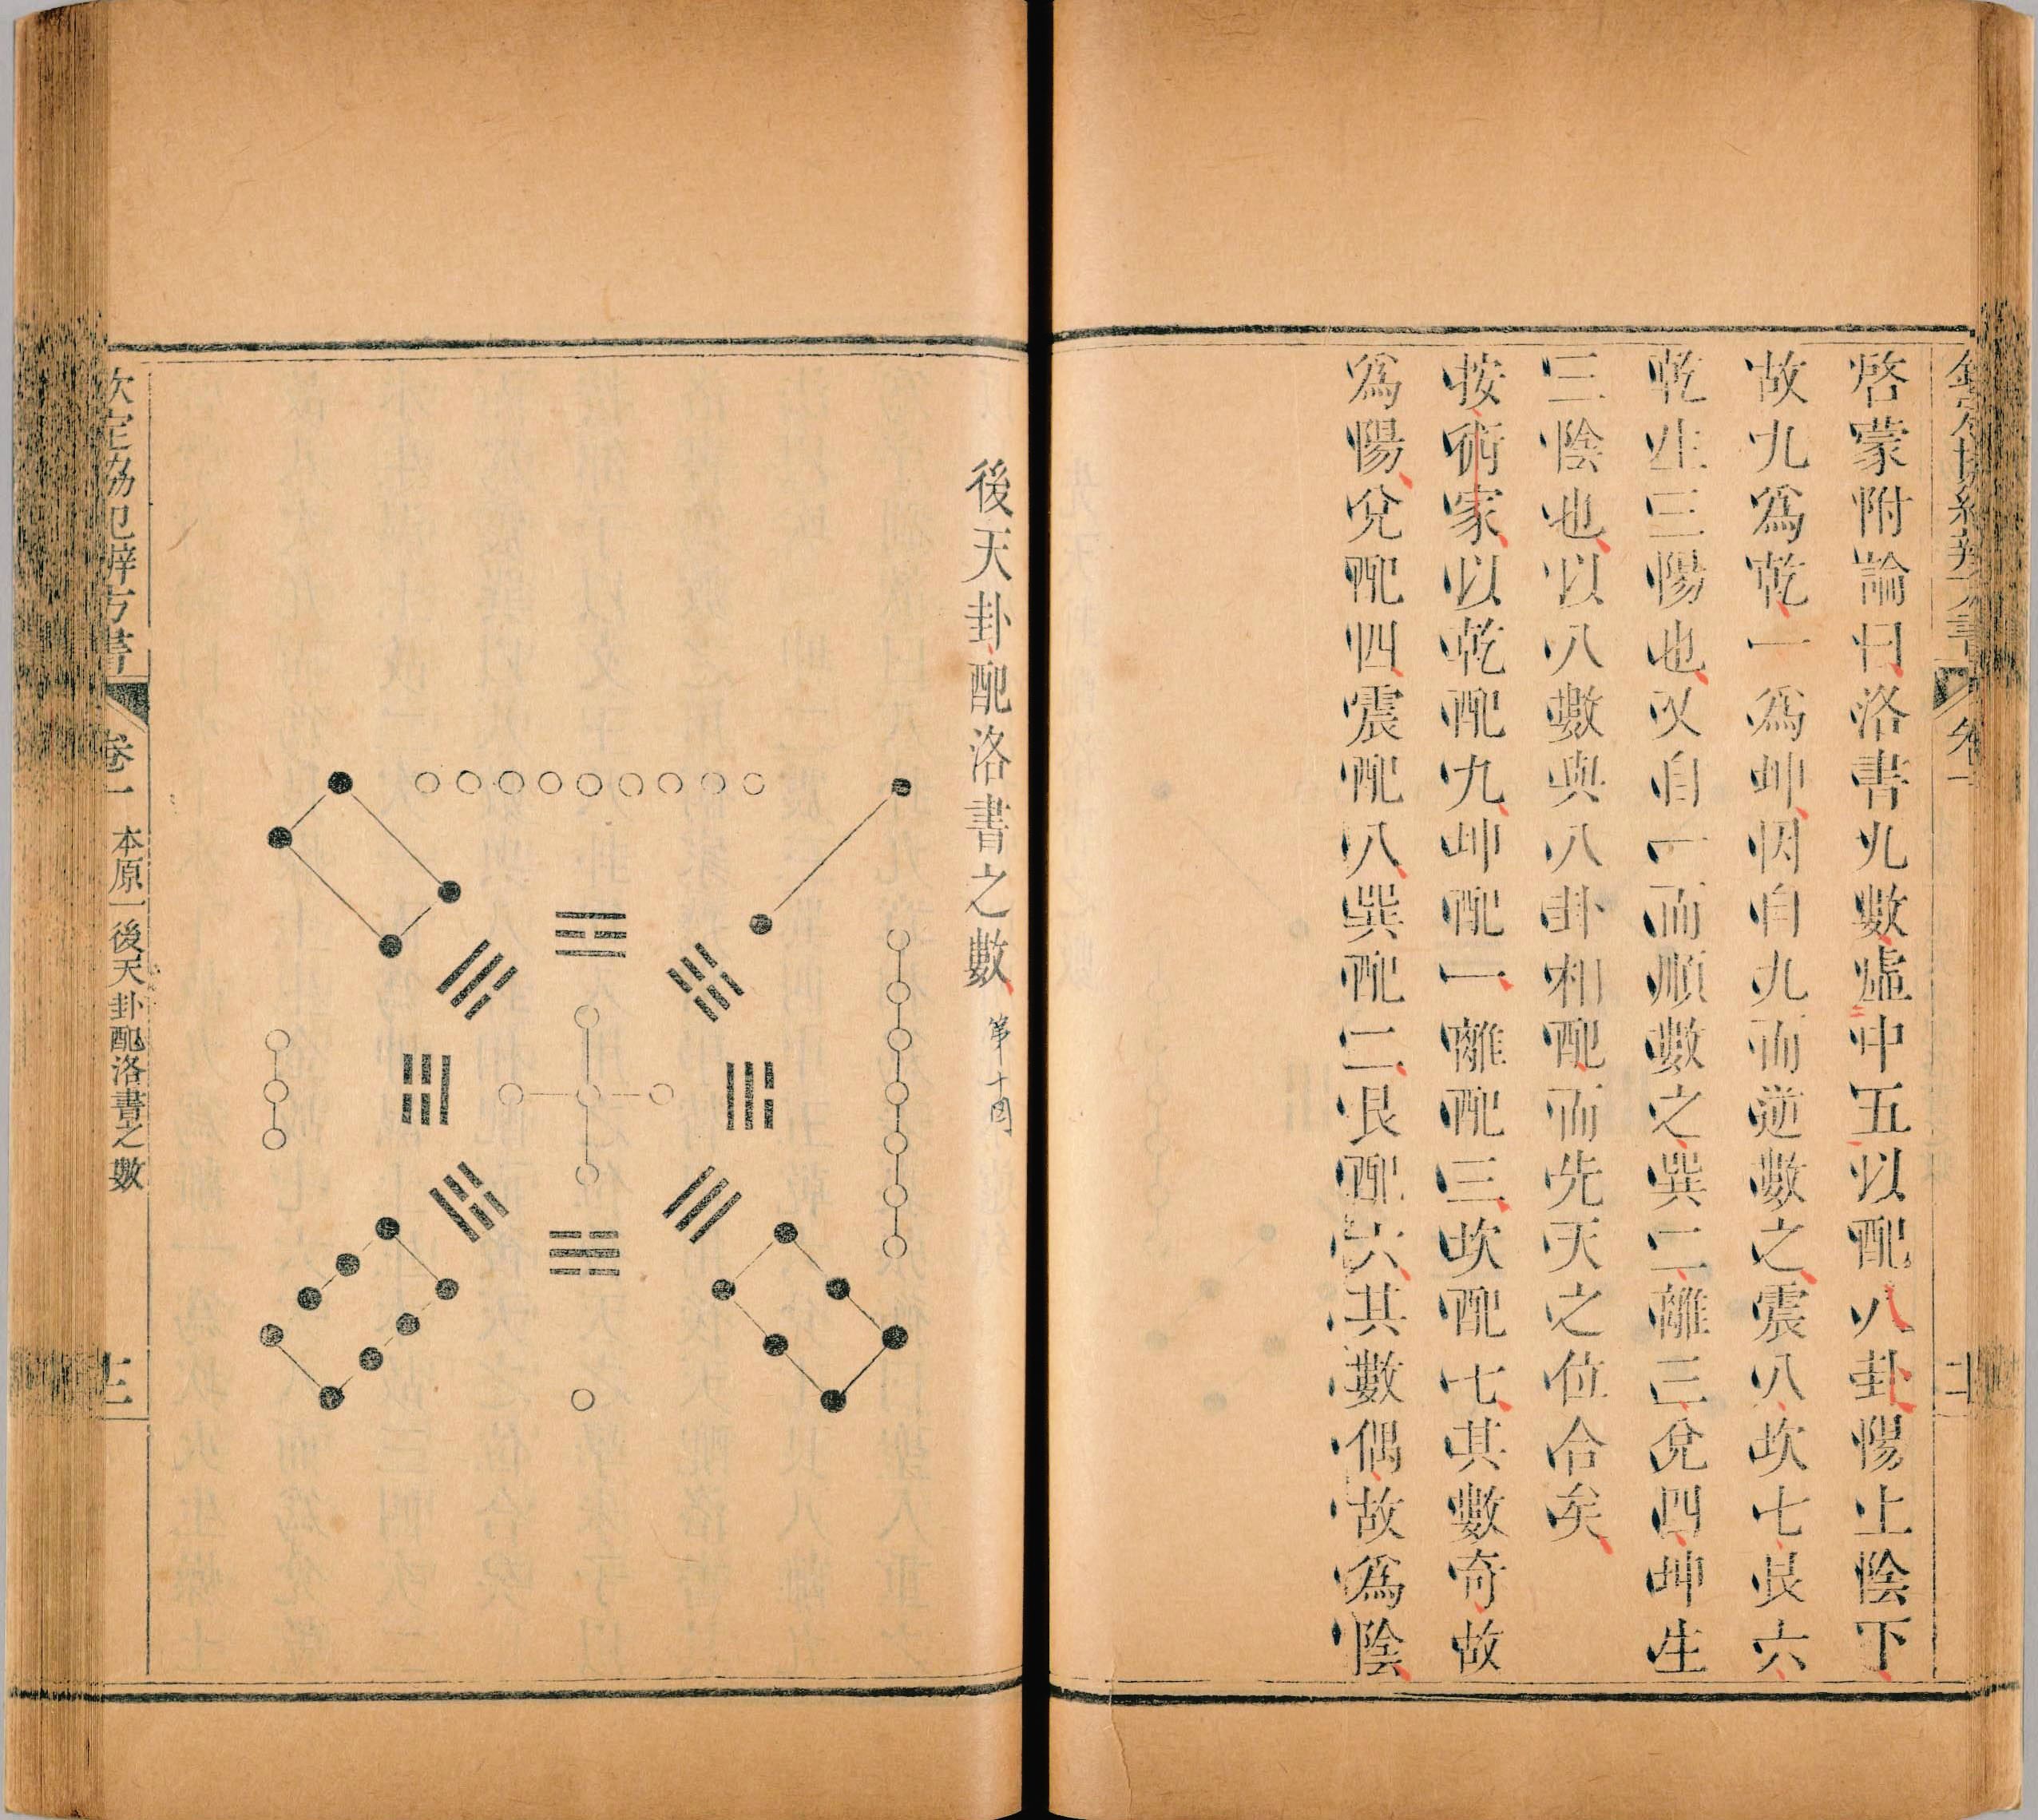 啓蒙附論曰洛書九數虛中五以配八卦陽上陰下
故九爲乾一爲坤因自九而逆數之震八坎七艮六
乾生三陽也又自一而順數之巽二離三兌四坤生
三陰也以八數與八卦相配而先天之位合矣
按術家以乾配九坤配一離配三坎配七其數奇故
爲陽兌配四震配八巽配二艮配六其數偶故爲陰
後天卦配洛書之數
第十圖
欽定協紀辨方書 卷一 本原一 後天卦配洛書之數